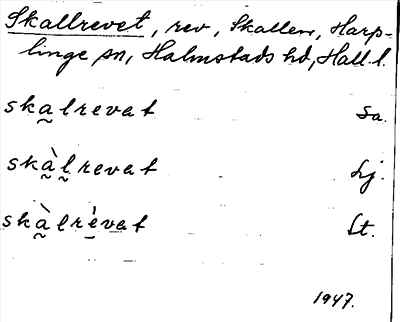 Skallrevet, rev, Skallen, Harp-
linge sn, Halmstads hd, Hall. l.
ska̰lrevat Sa.
skà̰l̰revat Lj.
skà̰lrè̲vat St.
1947.